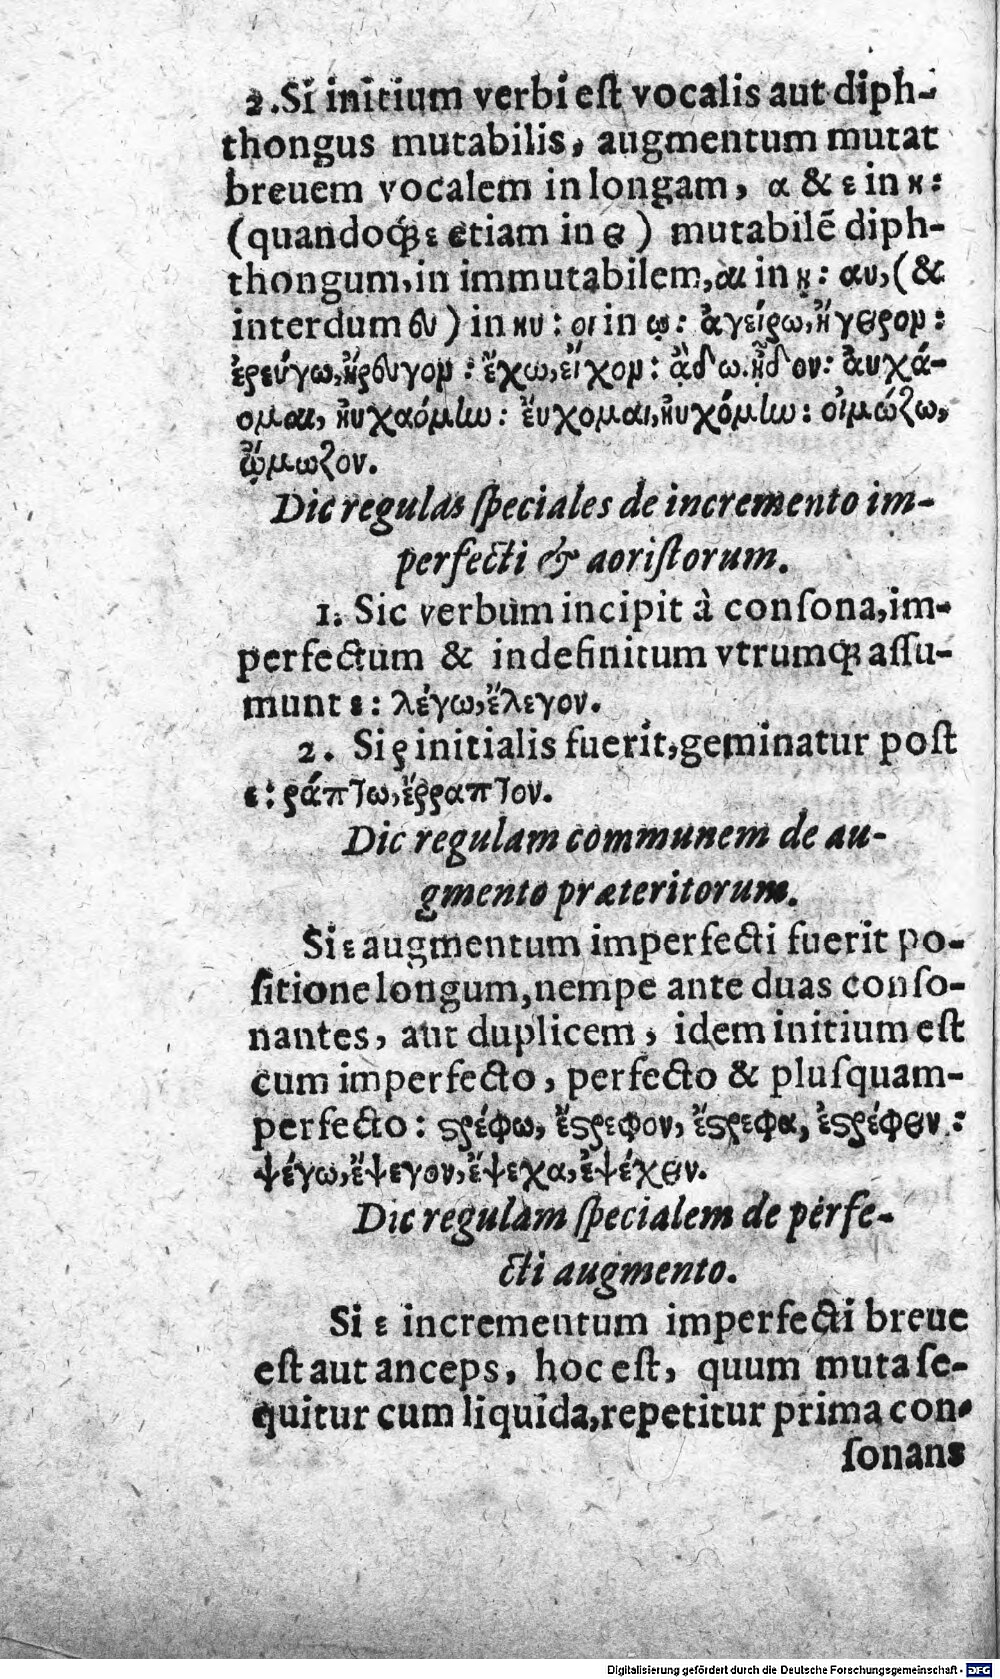 2. Si initium verbi eſt vocalis aut diph-
thongus mutabilis, augmentum mutat
breuem vocalem in longam, α & ε in η:
(quandoq́ꝫ ε etiam in ει) mutabilē diph-
thongum, in immutabilem, αι in ῃ: αυ, (&
interdum ευ) in ηυ: οι in ῳ: ἀγείρω, ἤγειρον:
ἐρεύγω, ἤρευγον: ἔχω, εἶχον: ᾄδω. ᾖδον: ἀυχά-
ομαι, ἠυχαόμην: ἔυχομαι, ἠυχόμην: οἰμώζω,
ᾤμωζον.
Dic regulas ſpeciales de incremento im-
perfecti & aoriſtorum.
1. Sic verbum incipit à conſona, im-
perfectum & indefinitum vtrumqꝫ aſſu-
munt ε: λέγω, ἔλεγον.
2. Si ρ initialis fuerit, geminatur poſt
ε: ράπτω, ἔρραπτον.
Dic regulam communem de au-
gmento præteritorum.
Si ε augmentum imperfecti fuerit po-
ſitione longum, nempe ante duas conſo-
nantes, aut duplicem, idem initium eſt
cum imperfecto, perfecto & pluſquam-
perfecto: ϛρέφω, ἔϛρεφον, ἔϛρεφα, ἐϛρέφειν:
ψέγω, ἔψεγον, ἔψεχα, ἐψέχειν.
Dic regulam ſpecialem de perfe-
cti augmento.
Si ε incrementum imperfecti breue
eſt aut anceps, hoc eſt, quum muta ſe-
quitur cum liquida, repetitur prima con-
ſonans
Digitalisierung gefördert durch die Deutsche Forschungsgemeinschaft - DFG